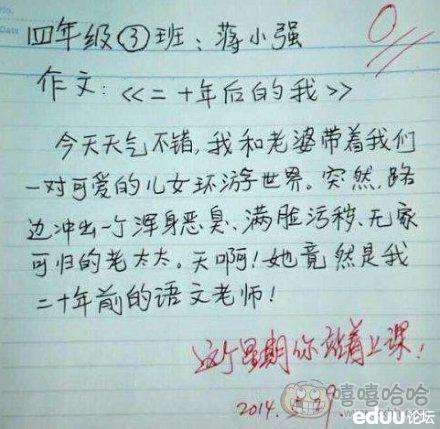 四年级③班：蒋小强
0
作文：《二十年后的我》
今天天气不错,我和老婆带着我们
一对可爱的儿女环游世界。突然,路
边冲出一个浑身恶臭、满脸污秽、无家
可归的老太太。天啊！她竟然是我
二十年前的语文老师！
这个星期你站着上课！
2014.
9.
嘻嘻哈哈
eduu论坛